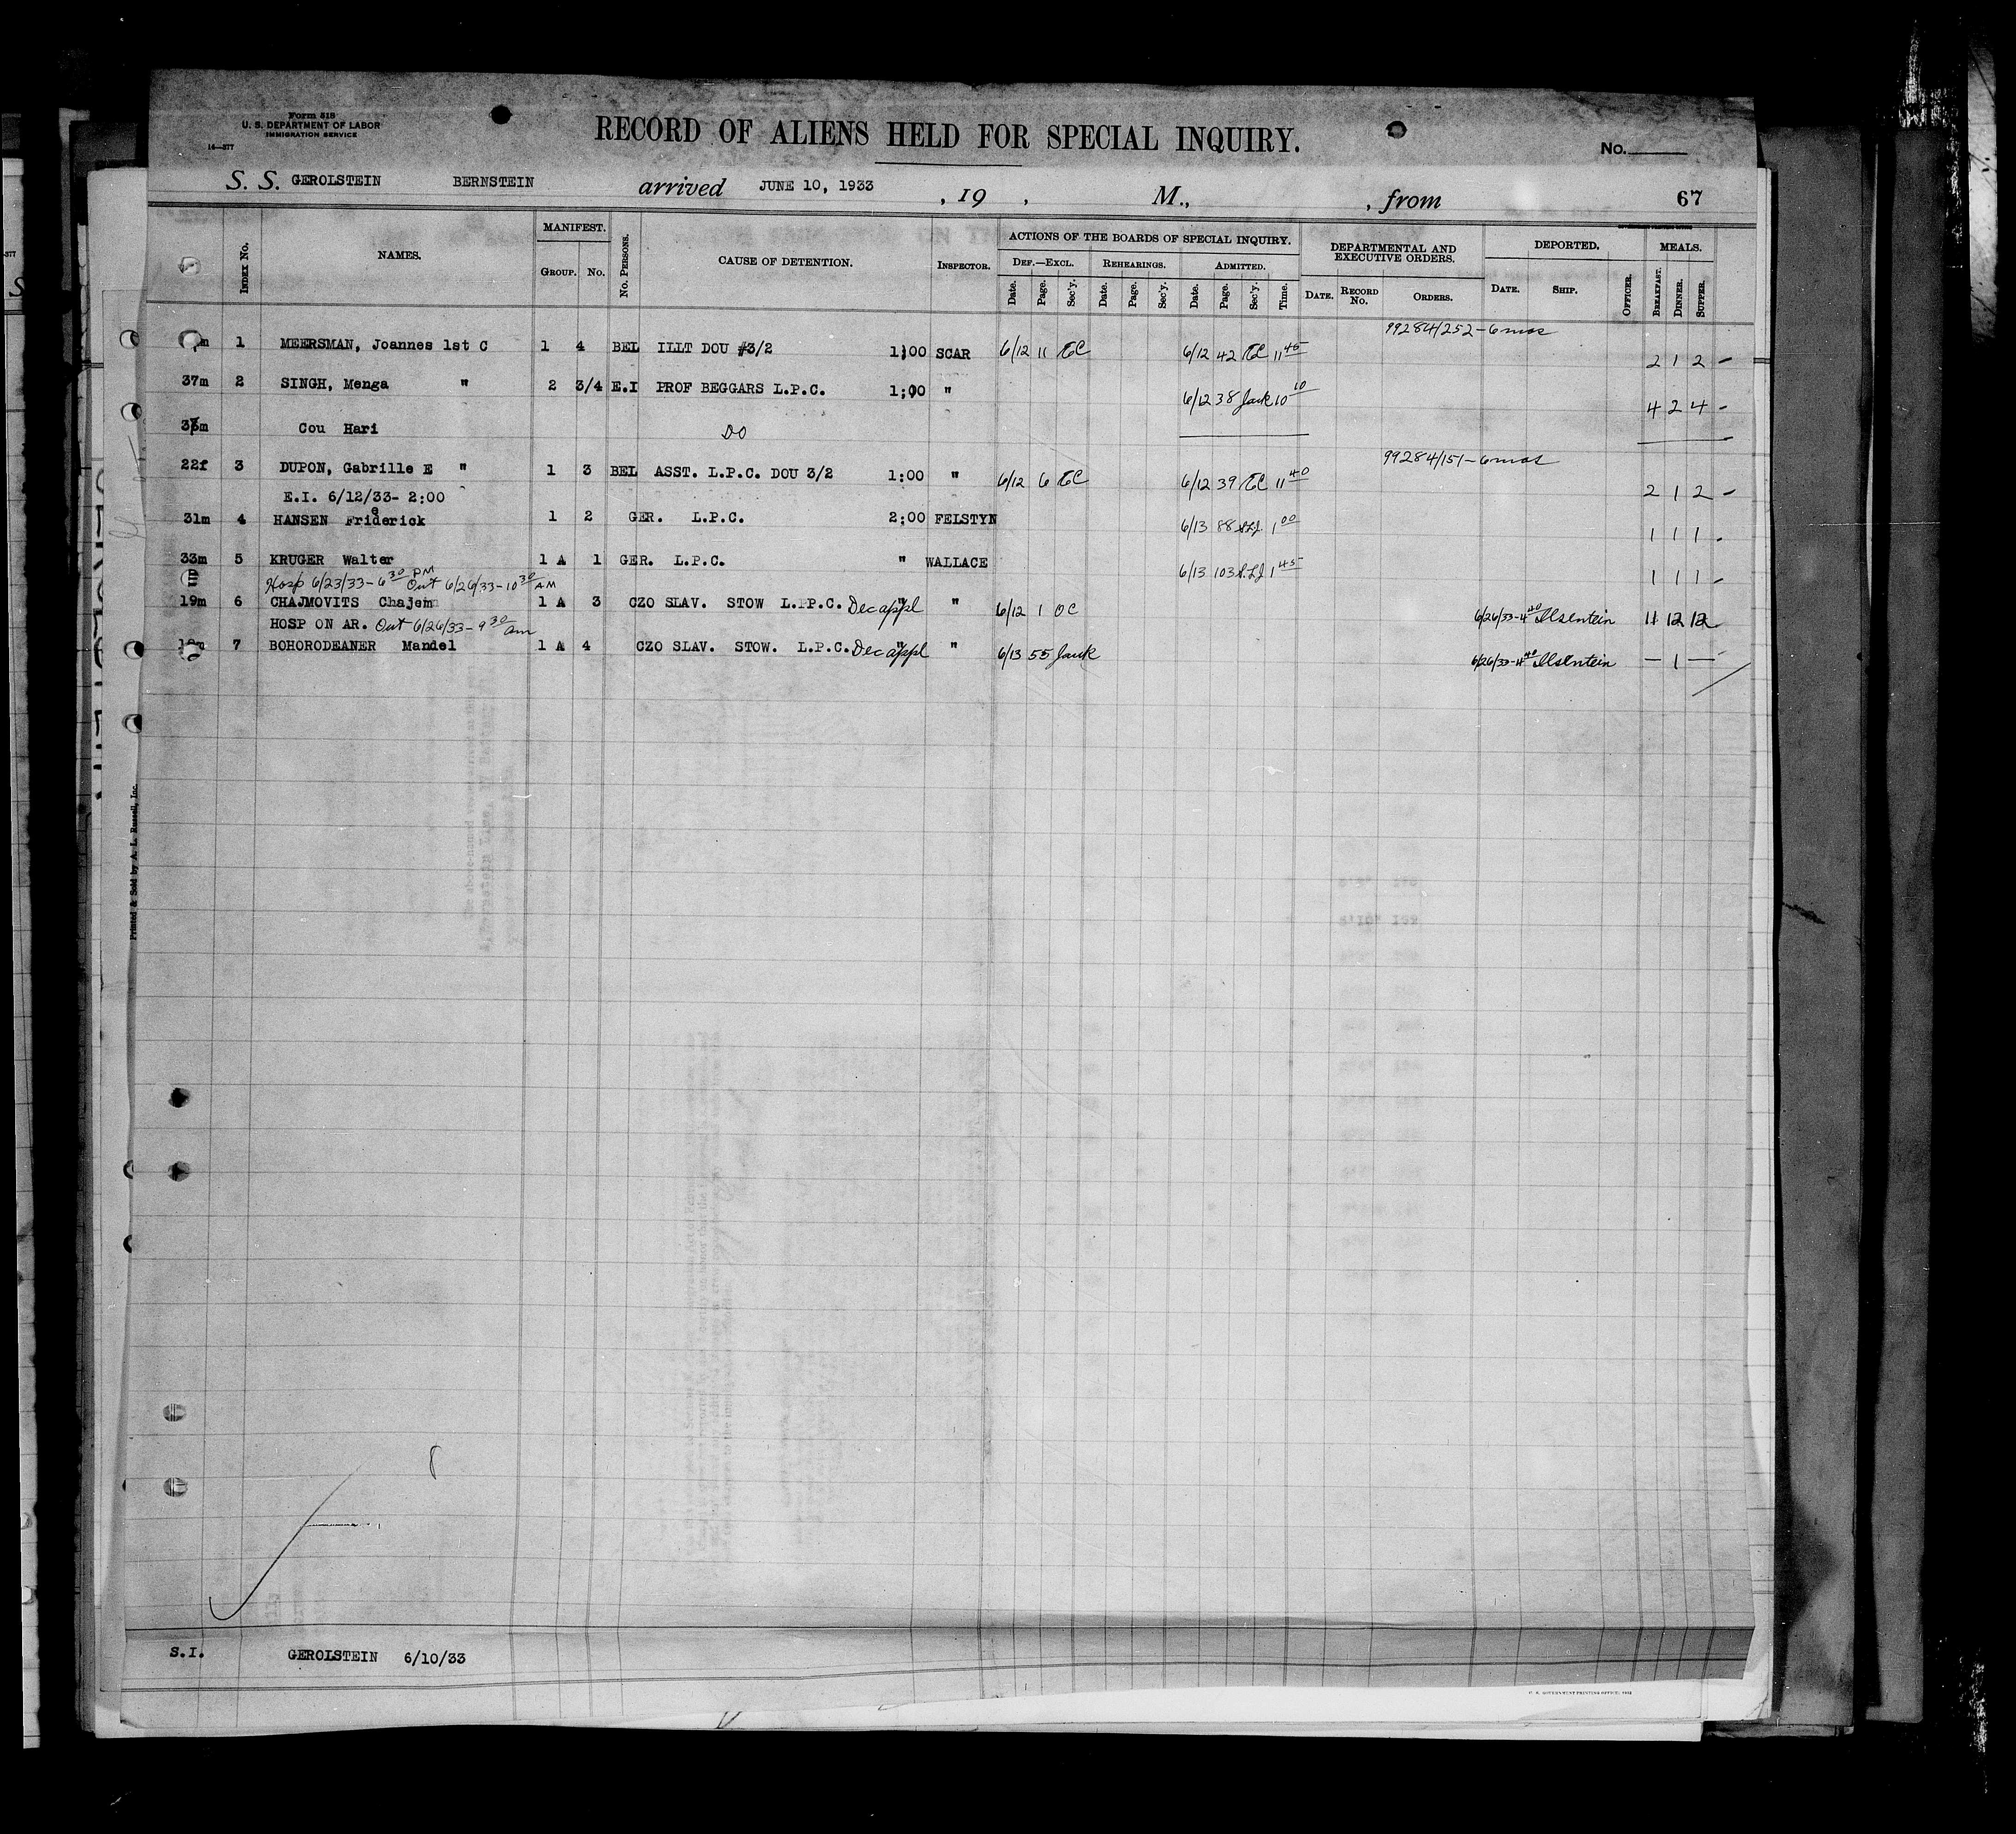 Form 518
U. S. DEPARTMENT OF LABOR
IMMIGRATION SERVICE
14—377
RECORD OF ALIENS HELD FOR SPECIAL INQUIRY.
No.
S. S. GEROLSTEIN BERNSTEIN arrived JUNE 10, 1933 , 19 , M., , from 67
INDEX No. NAMES. MANIFEST. GROUP. No. No. PERSONS. CAUSE OF DETENTION. INSPECTOR. ACTIONS OF THE BOARDS OF SPECIAL INQUIRY. DEF.—EXCL. Date. Page. Sec'y. REHEARINGS. Date. Page. Sec'y. ADMITTED. Date. Page. Sec'y. Time. DEPARTMENTAL AND EXECUTIVE ORDERS. DATE. RECORD No. ORDERS. DEPORTED. DATE. SHIP. OFFICER. MEALS. BREAKFAST. DINNER. SUPPER.
99284/252-6mos
m 1 MEERSMAN, Joannes 1st C 1 4 BEL ILLT DOU #3/2 1:00 SCAR 6/12 11 EC 6/12 42 EC 11 45 2 1 2 -
37m 2 SINGH, Menga " 2 3/4 E.I PROF BEGGARS L.P.C. 1:00 " 6/12 38 Jack 10 10 4 2 4 -
m Cou Hari DO
99284/151-6mos
22f 3 DUPON, Gabrille E " 1 3 BEL ASST. L.P.C. DOU 3/2 1:00 " 6/12 6 EC 6/12 39 EC 11 40 2 1 2 -
E.I. 6/12/33- 2:00
31m 4 HANSEN Friderick e 1 2 GER. L.P.C. 2:00 FELSTYN 6/13 88 1 00 1 1 1 -
33m 5 KRUGER Walter 1 A 1 GER. L.P.C. " WALLACE 6/13 103 1 45 1 1 1 -
Hosp 6/23/33-6 30 PM Out 6/26/33-10 30 AM
19m 6 CHAJMOVITS Chajem 1 A 3 CZO SLAV. STOW L.P.C. Dec appl " " 6/12 1 OC 6/26/33-4 40 Ilsentein 11 12 12
HOSP ON AR. Out 6/26/33-9 30 am
7 BOHORODEANER Mandel 1 A 4 CZO SLAV. STOW. L.P.C. Dec appl " " 6/13 55 Jack 6/26/33-4 40 Ilsentein — 1 —
Printed & Sold by A. L. Russell, Inc.
S.I. GEROLSTEIN 6/10/33
U. S. GOVERNMENT PRINTING OFFICE: 1932